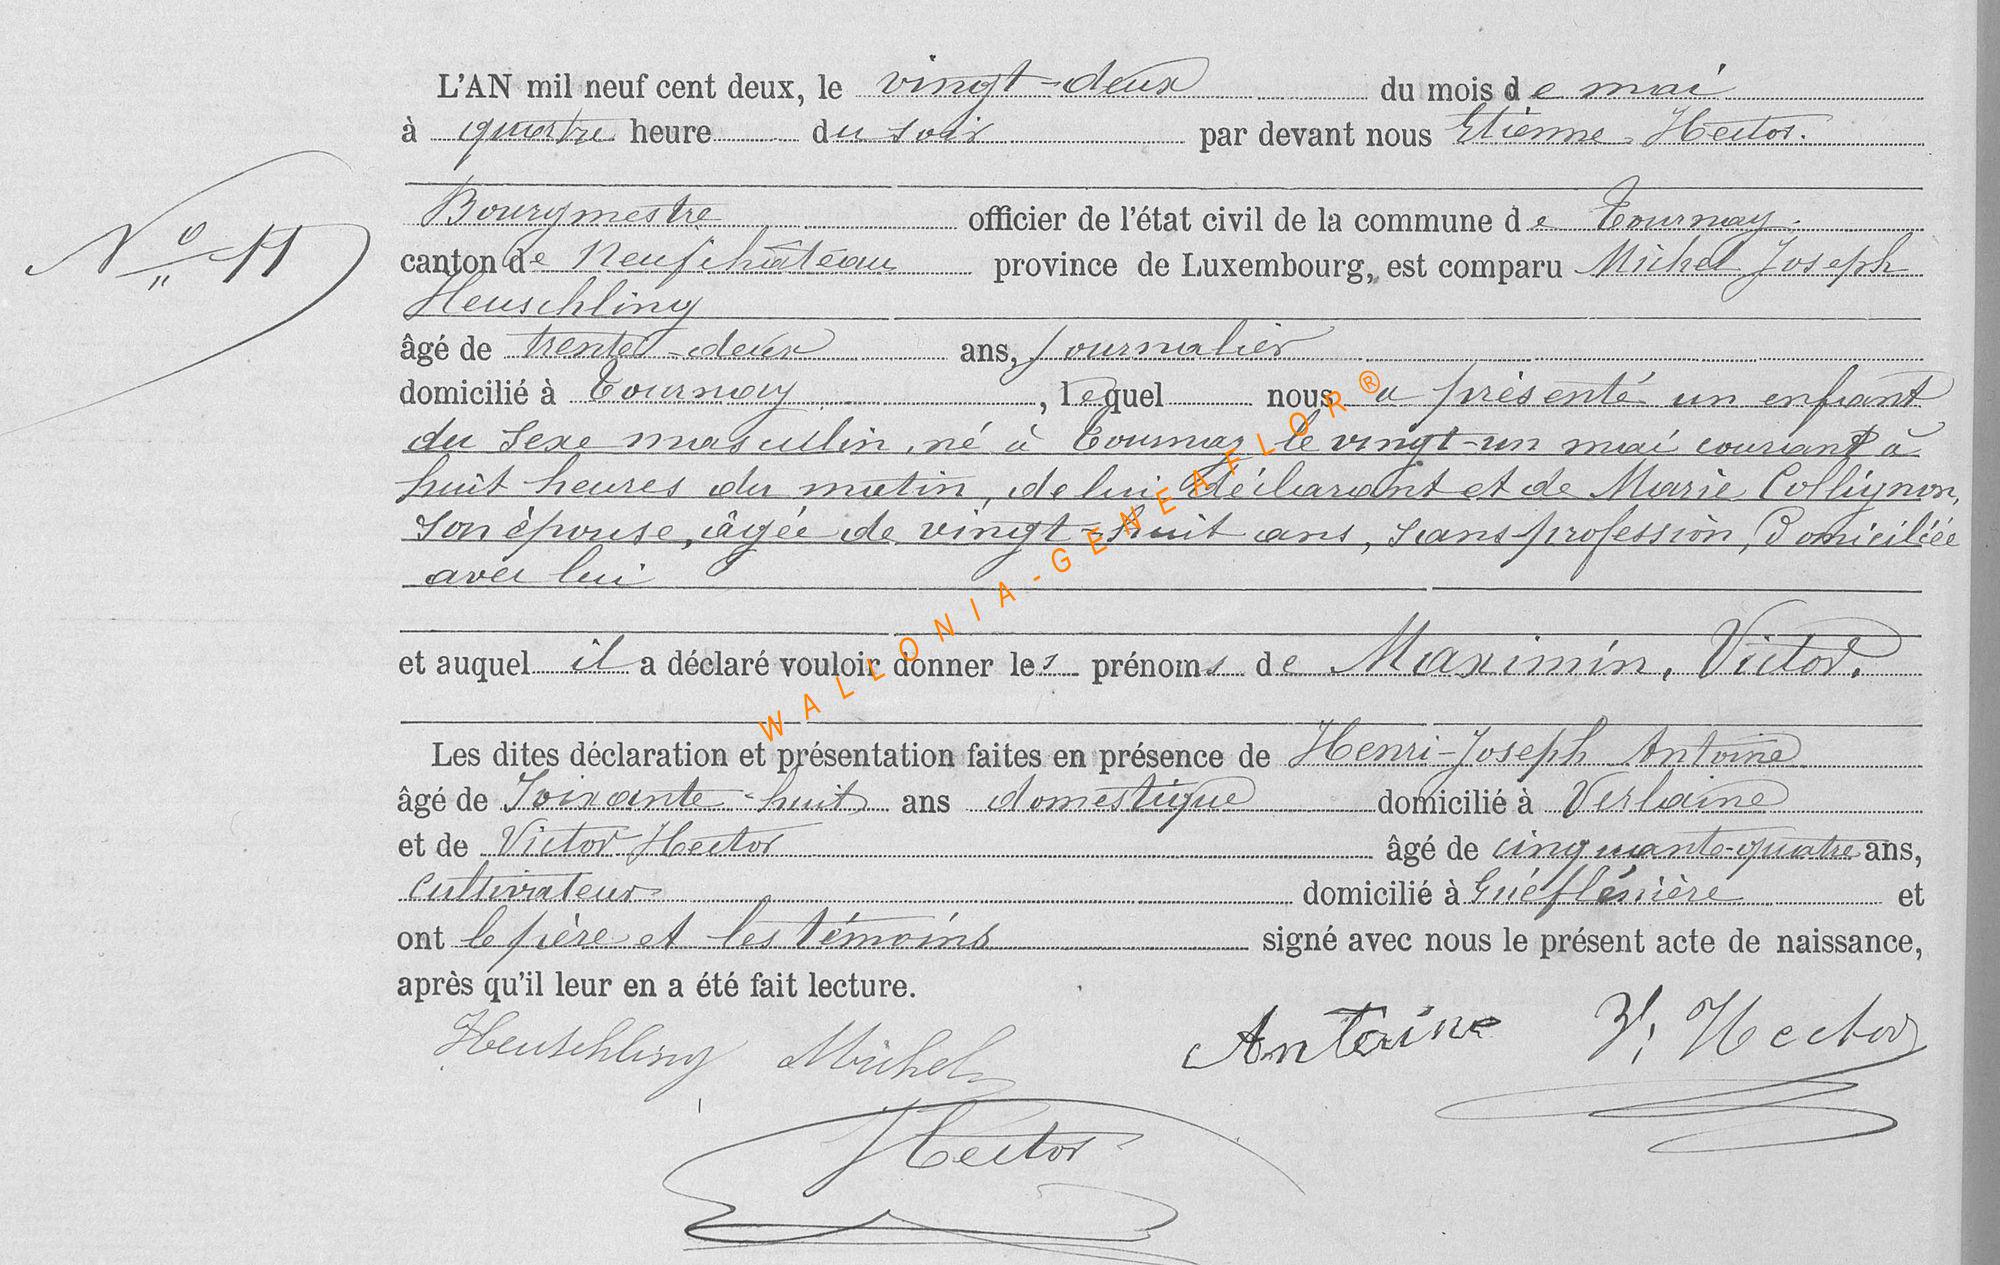 L'AN mil neuf cent deux, le vingt-deux du mois de mai
à quatre heure du soir par devant nous Etienne Hector.
Bourgmestre officier de l'état civil de la commune de Tournay.
N° 11
canton de Neufchâteau province de Luxembourg, est comparu Michel Joseph
Heuschling
âgé de trente-deux ans, journalier
domicilié à Tournay, lequel nous a présenté un enfant
du sexe masculin, né à Tournay le vingt-un mai courant à
huit heures du matin, de lui déclarant et de Marie Collignon,
son épouse, âgée de vingt-huit ans, sans profession, Domiciliée
avec lui
et auquel il a déclaré vouloir donner les prénoms de Maximin, Victor.
WALLONIA-GENEAFLOR®
Les dites déclaration et présentation faites en présence de Henri-Joseph Antoine
âgé de Soixante-huit ans domestique domicilié à Verlaine
et de Victor Hector âgé de cinquante-quatre ans,
cultivateur domicilié à et
ont le père et les témoins signé avec nous le présent acte de naissance,
après qu'il leur en a été fait lecture.
Heuschling Michel Antoine V. Hector
Hector